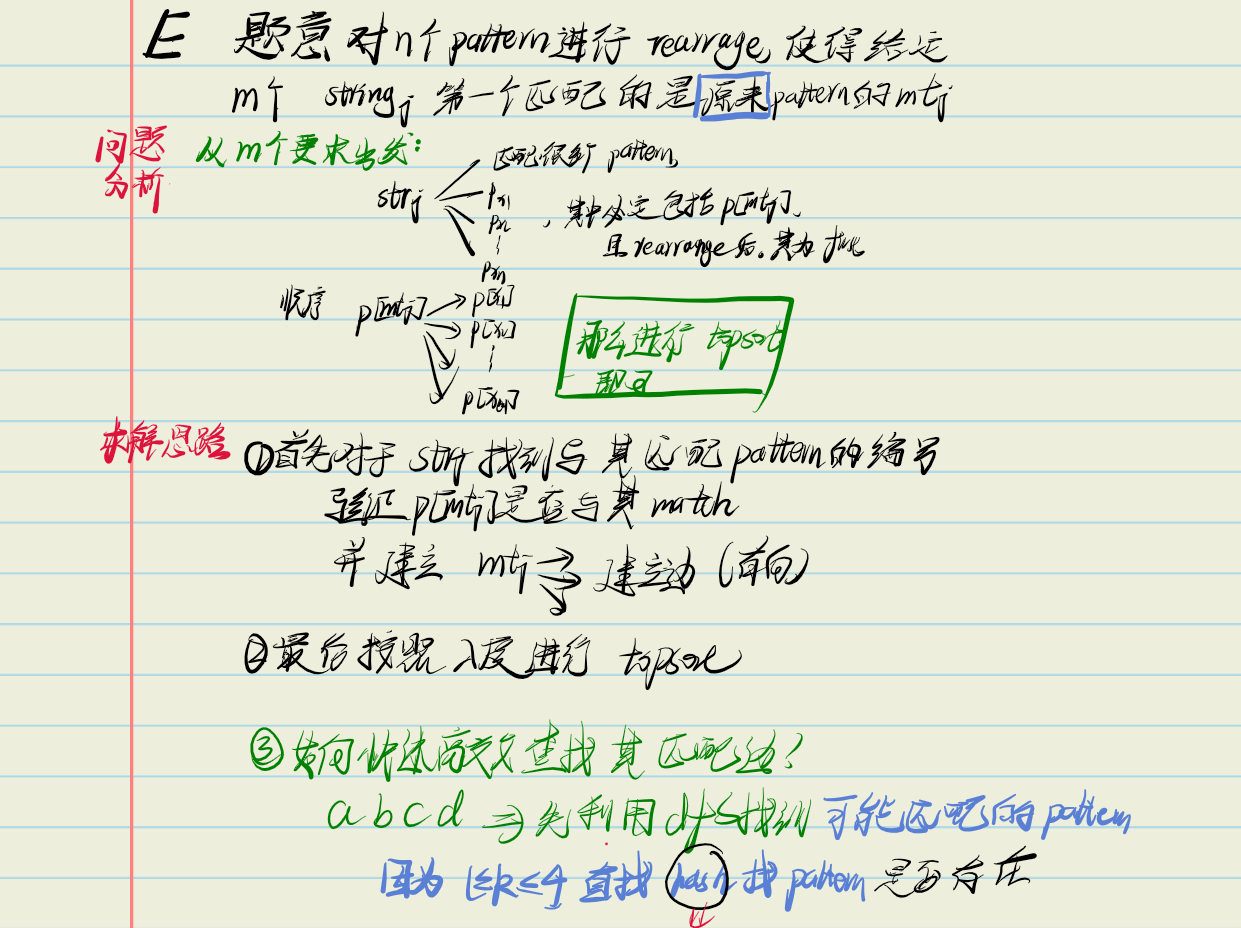 E 题意 对n个pattern进行 rearrage, 使得给定
m个 stringj 第一个匹配的是原来pattern的mtj
问题
分析
从m个要求出发:
匹配很多 pattern,
strj
Px1
Px2
, 其中必定包括p[mtj],
且rearrange后,其为
Pxn
顺序 p[mtj]
p[x1]
p[x2]
p[xn]
那么进行 topsort
即可
求解思路
①首先对于 strj 找到与其匹配pattern的编号
验证p[mtj]是否与其match
并建立 mtj 建立边(有向)
②最后按照入度进行 topsort
③如何快速高效查找其匹配边?
abcd ⇒ 先利用dfs找到 可能匹配的pattern
因为 1≤k≤4 直接 hash 找 pattern 是否存在